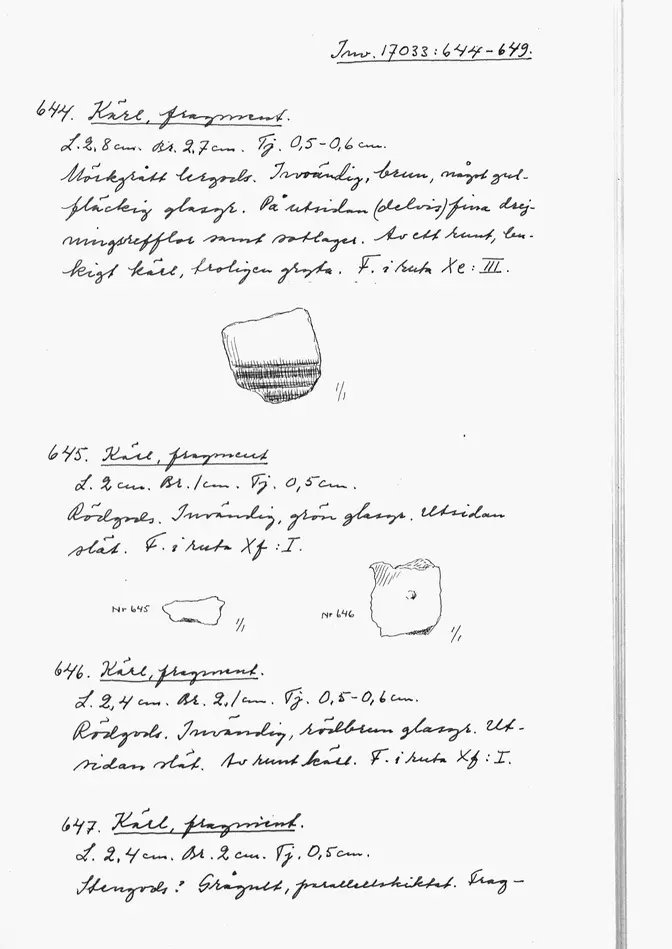 Inv. 17033:644-649.
644. Kärl, fragment.
L. 2,8 cm. Br. 2,7 cm. Tj. 0,5-0,6 cm.
Mörkgrått lergods. Invändig, brun, något gul-
fläckig glasyr. På utsidan (delvis) fina drej-
ningsrefflor samt sotlager. Av ett runt, bu-
kigt kärl, troligen gryta. F. i ruta Xe: III.
1/1
645. Kärl, fragment
L. 2 cm. Br. 1 cm. Tj. 0,5 cm.
Rödgods. Invändig, grön glasyr. Utsidan
slät. F. i ruta Xf: I.
Nr 645 1/1 Nr 646 1/1
646. Kärl, fragment.
L. 2,4 cm. Br. 2,1 cm. Tj. 0,5-0,6 cm.
Rödgods. Invändig, rödbrun glasyr. Ut-
sidan slät. Av runt kärl. F. i ruta Xf: I.
647. Kärl, fragment.
L. 2,4 cm. Br. 2 cm. Tj. 0,5 cm.
Stengods? Grågult, parallellskiktat. Frag-